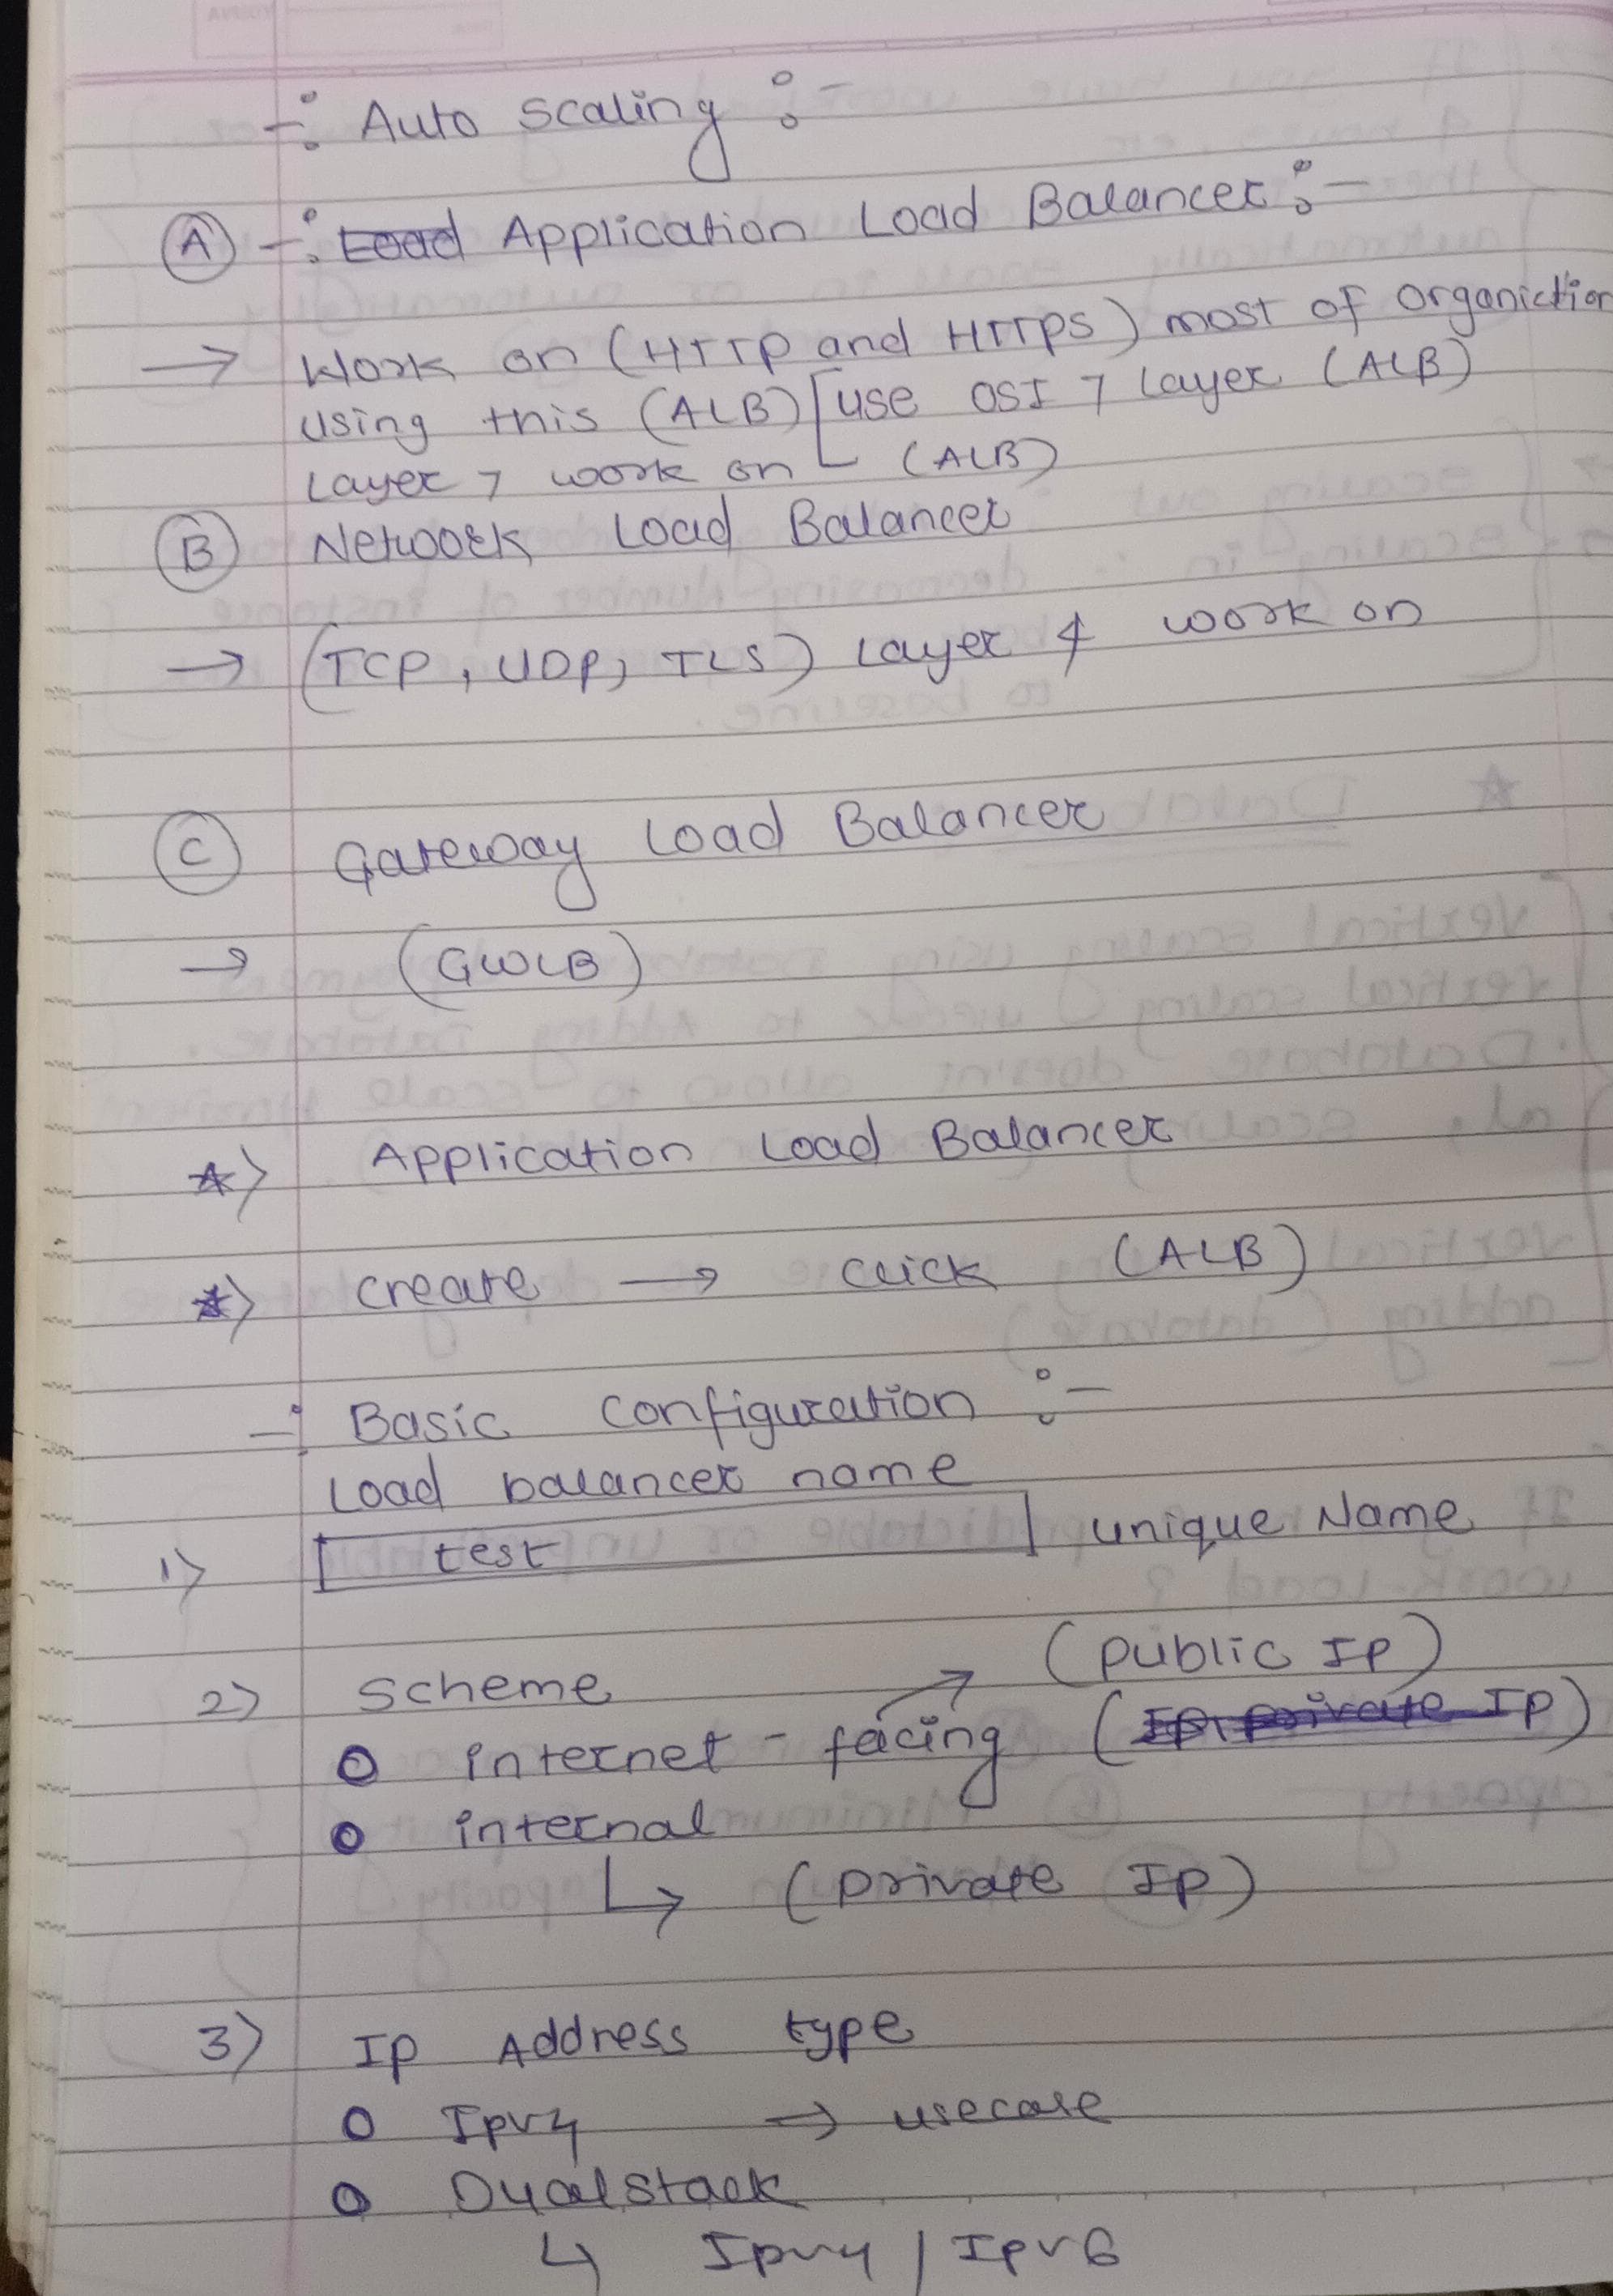 -: Auto scaling :-
(A) -: Load Application Load Balancer :-
→ Work on (HTTP and HTTPS) most of organiction
using this (ALB) [use OSI 7 Layer (ALB)
Layer 7 work on (ALB)
(B) Network Load Balancer
→ (TCP, UDP, TLS) Layer 4 work on
(C) Gateway Load Balancer
→ (GWLB)
*) Application Load Balancer
*) create → click (ALB)
-: Basic configuration :-
Load balancer name
1) [ test ] unique Name
2) scheme → (public Ip)
o internet-facing (Ip private Ip)
o internal
↳ (private Ip)
3) Ip Address type
o Ipv4 → usecase
o Dualstack
↳ Ipv4 / Ipv6